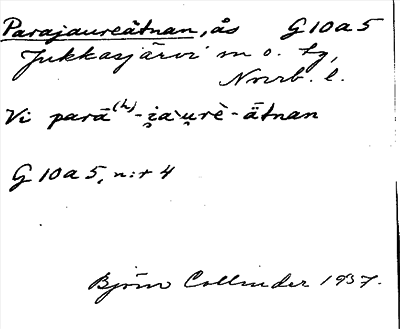 Parajaureätnan, ås G 10 a 5
Jukkasjärvi sn o. tg,
Norrb. l.
Vi parā(h)-i̯a`u̯rè-ätnan
G 10 a 5, n:r 4
Björn Collinder 1937.